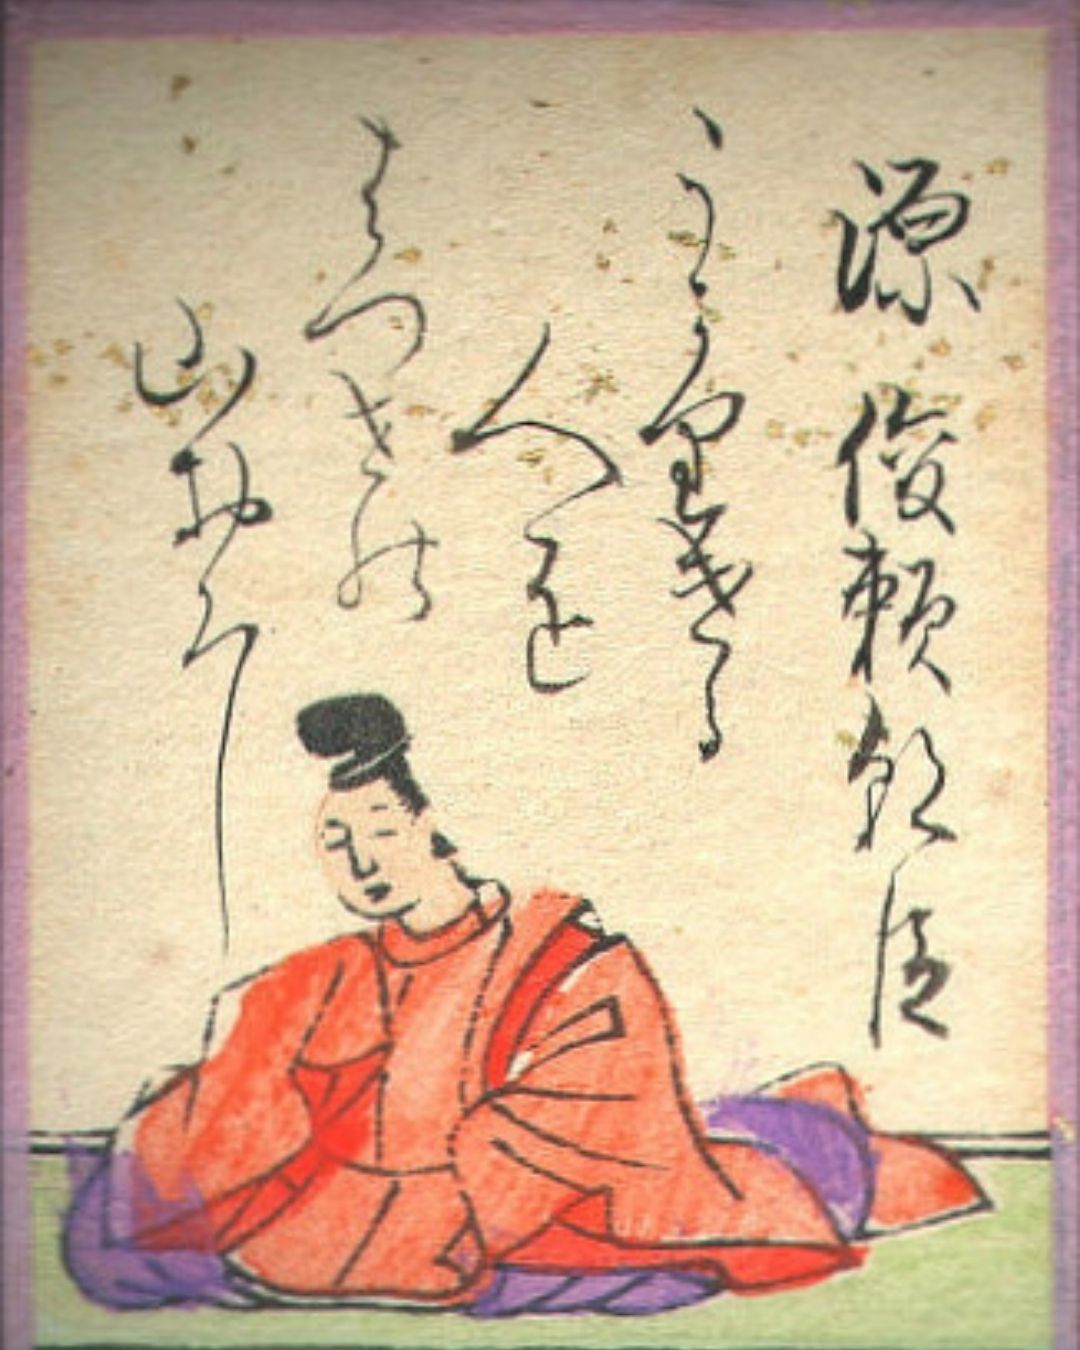 源 俊頼朝臣
うかりける
人を
はつせの
山おろし